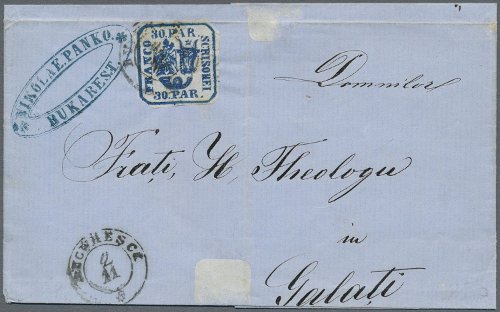 NIKOLAE PANKO.
BUKAREST.
30. PAR.
FRANCO
SCRISOREI
30. PAR.
Domnilor
Frați, H, Theologu
in
Galați
BUCURESCI
2
11